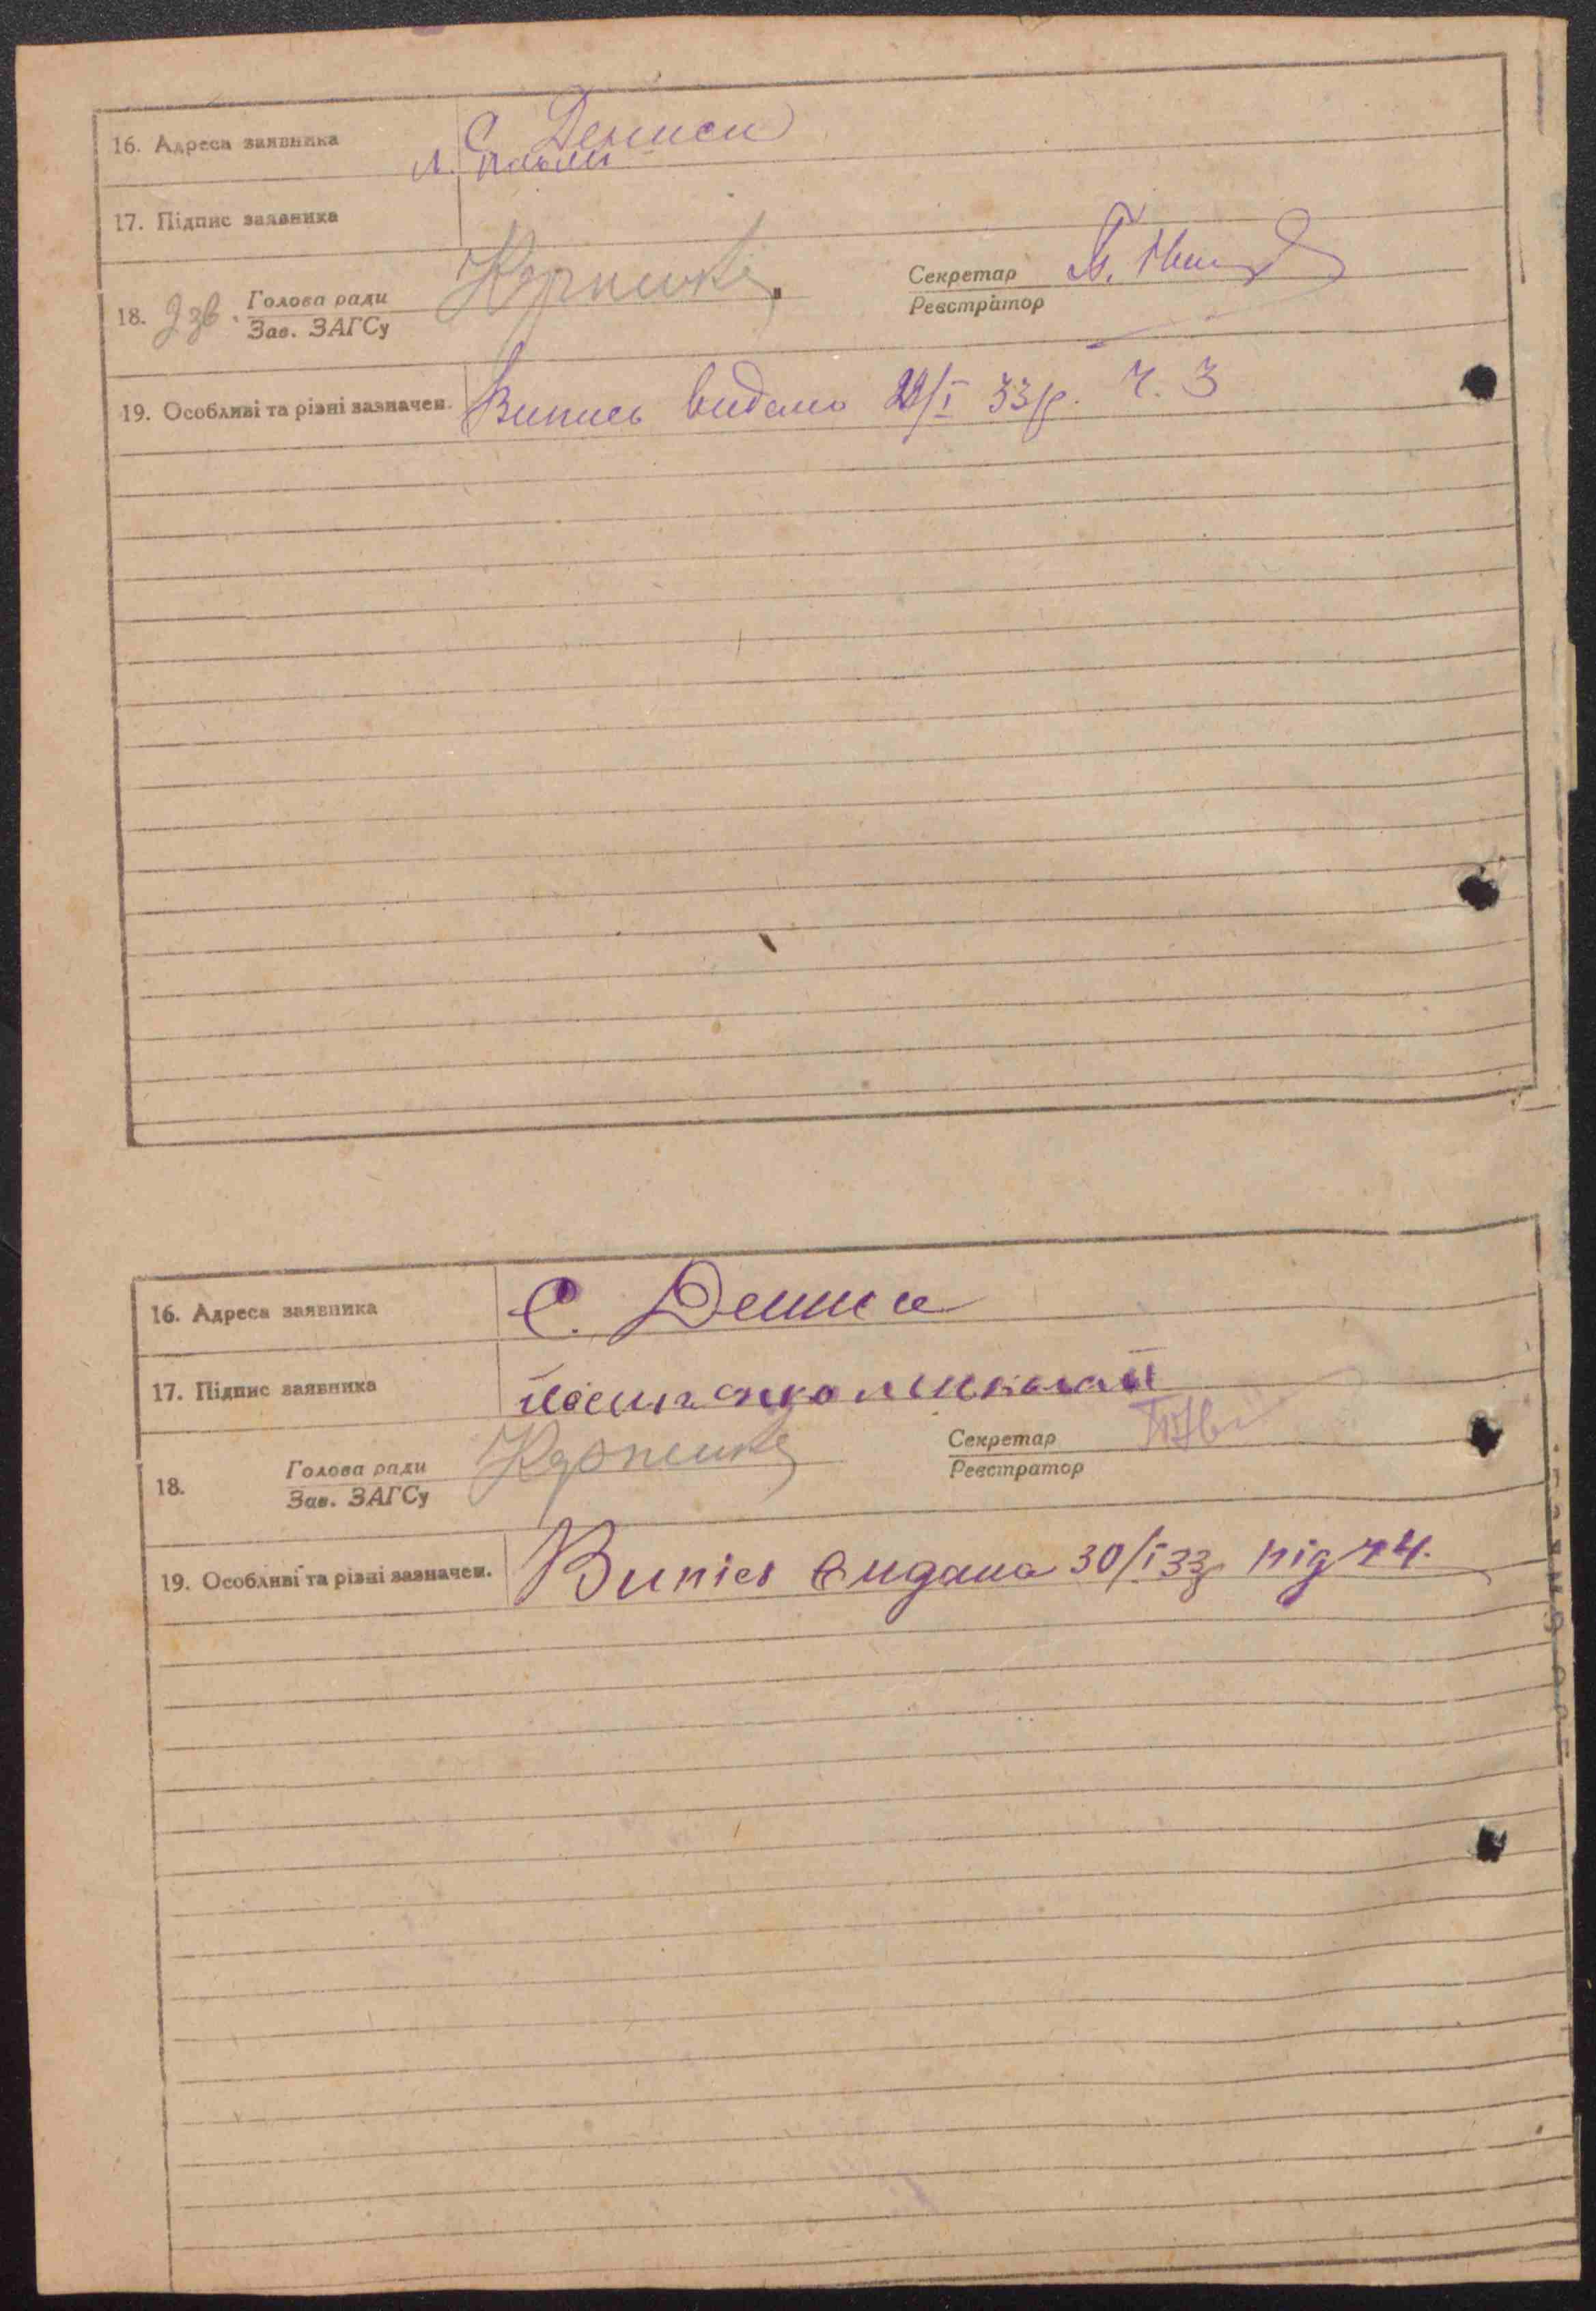 16. Адреса заявника С. Дениси
17. Підпис заявника
18. Голова ради Секретар
Зав. ЗАГСу Реєстратор
19. Особливі та різні зазначен. Випись видано 29/I 33 р. Ч. 3
16. Адреса заявника С. Дениси
17. Підпис заявника Миколай
18. Голова ради Секретар
Зав. ЗАГСу Реєстратор
19. Особливі та різні зазначен. Випісь видана 30/I 33 р під Ч 4.